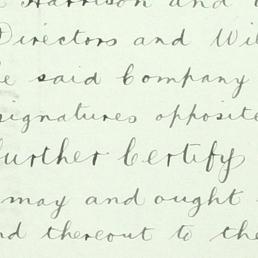 Harrison and
Directors and Wil
said Company
signatures opposite
further Certify
may and ought
nd thereout to the